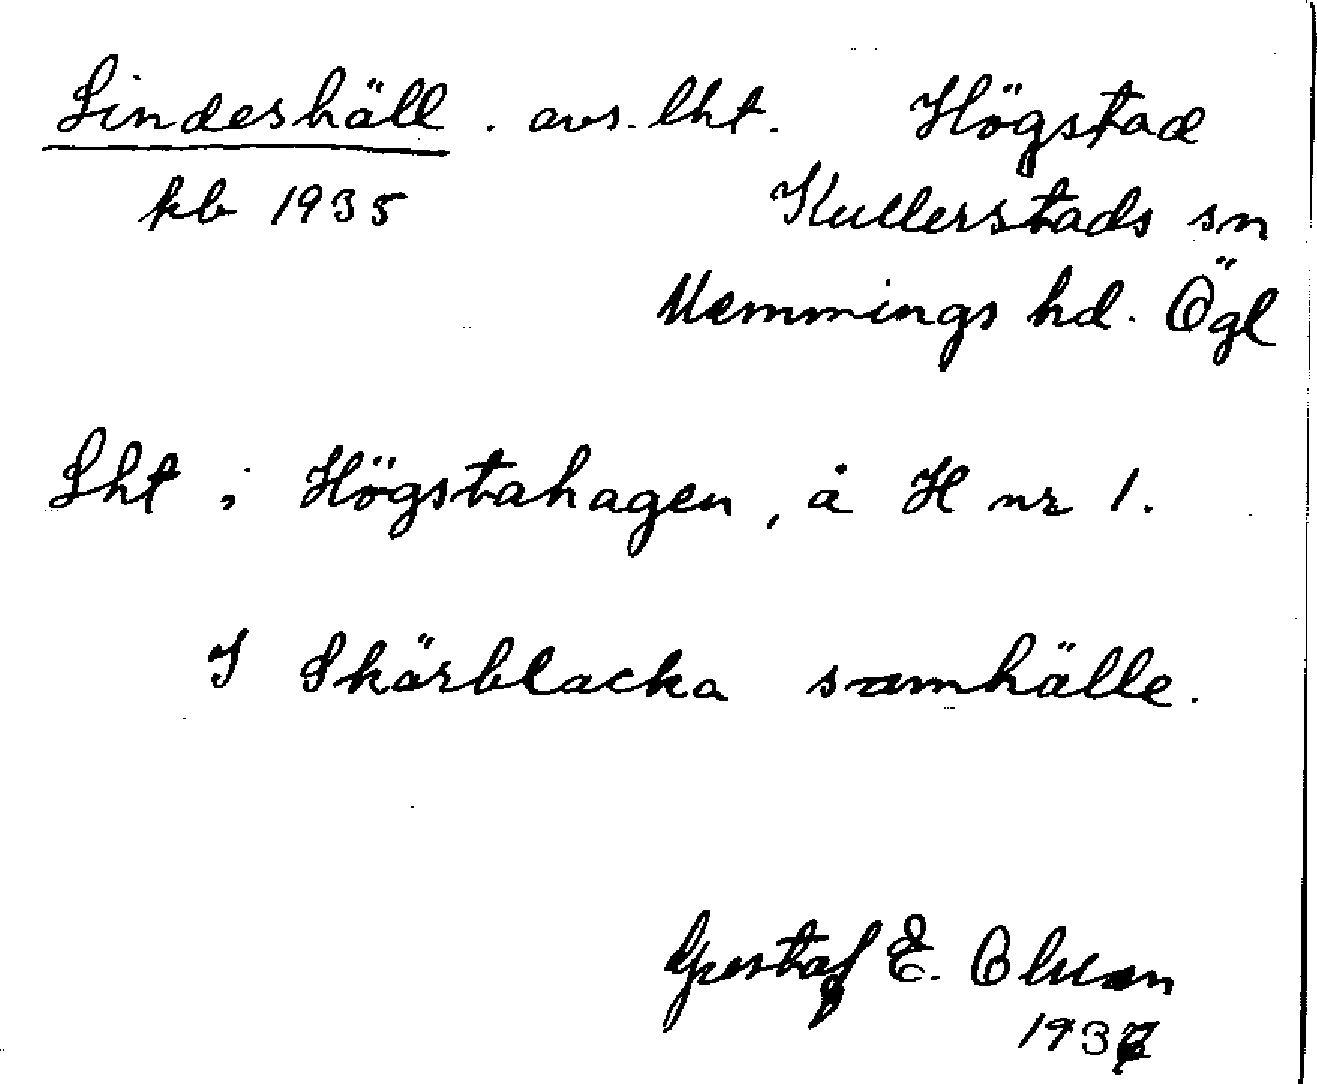 Lindeshäll. avs. lht. Högstad
kb 1935 Kullerstads sn
Memmings hd. Ögl
Lht i Högstahagen, å H nr 1.
I Skärblacka samhälle.
Gustaf E. Olsson
193